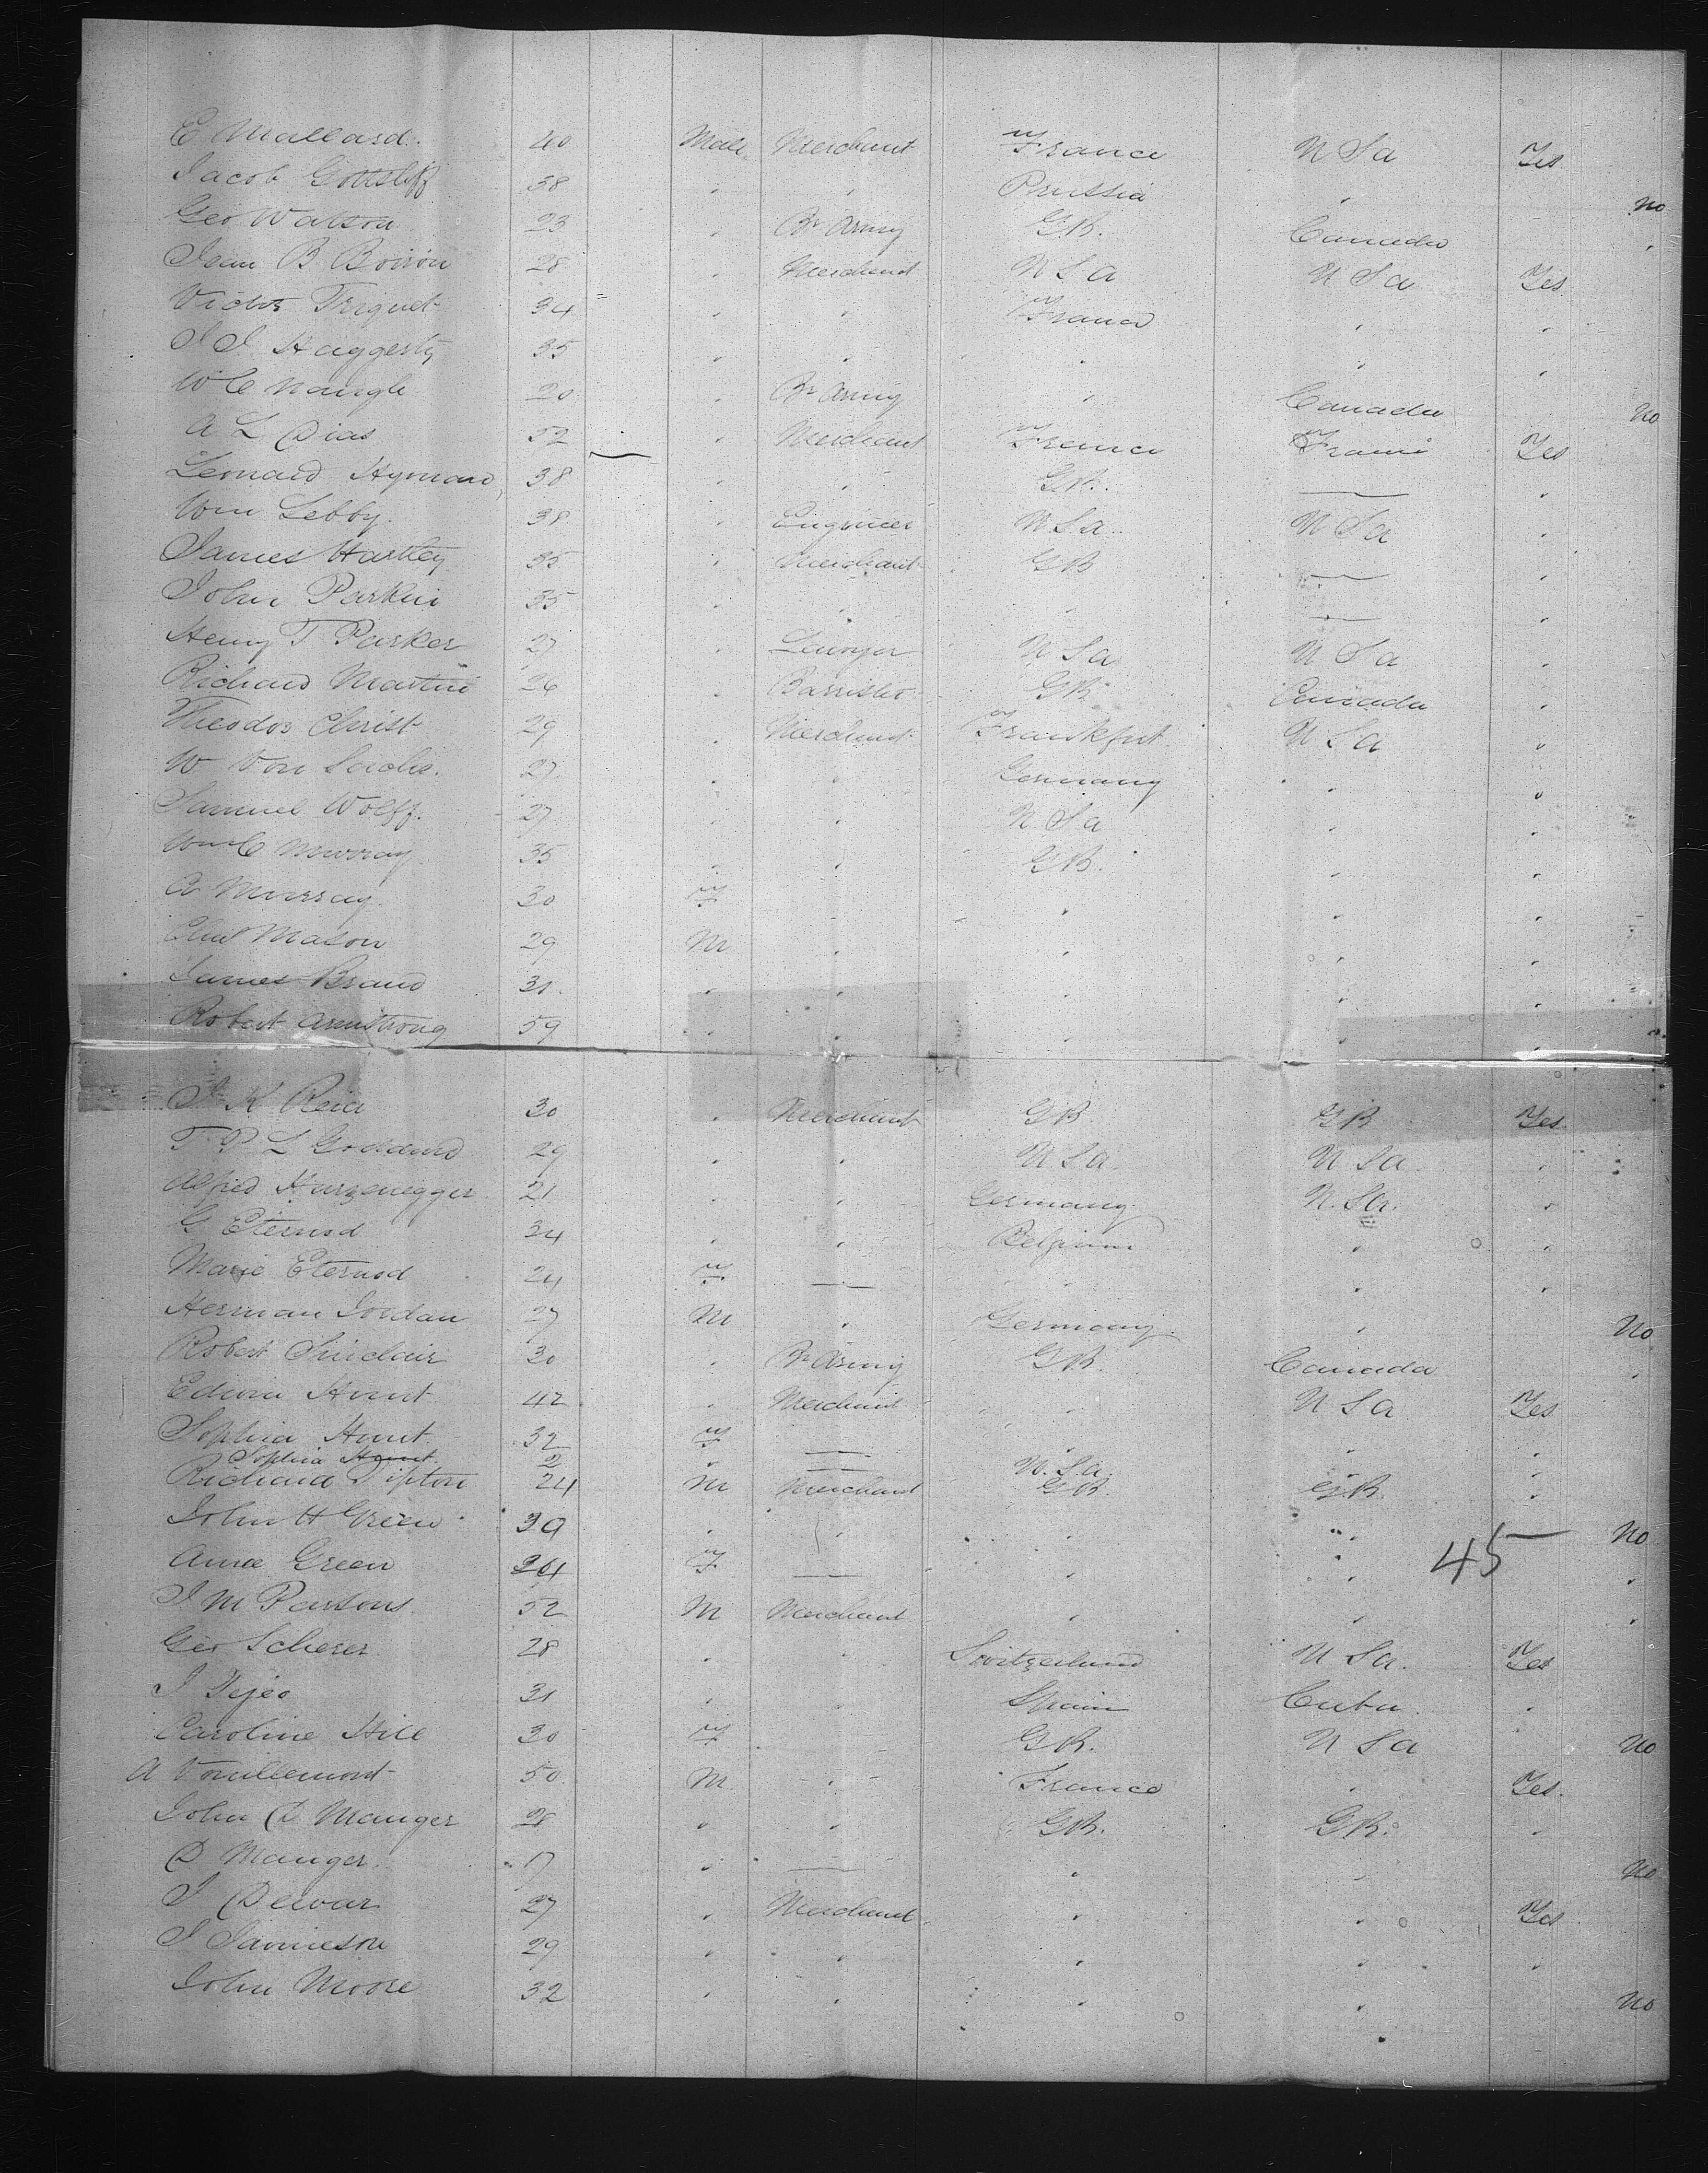 E Mallard. 40 Male Merchant France U S a Yes
Jacob Gottslff 38 " " Prussia " No
Geo Watson 23 " Br Army G.B. Canada "
Jean B Boiron 28 " Merchant U S a U S a Yes
Victor Triquet 34 " " France " "
J J Haggerty 35 " " " " "
W C Naugle 20 " Br Army " Canada No
A L Dias 52 — " Merchant France France Yes
Leonard Hyman 38 " " G.B. — "
Wm Lebby. 38 " Engineer U S a U S a "
James Hartley 35 " Merchant G B — "
John Parkin 35 " " " — "
Henry T Parker 27 " Lawyer U S a U S a "
Richard Martin 26 " Barrister G B Canada "
Theodor Christ 29 " Merchant Frankfurt U S a "
W Von Sachs. 27 " " Germany " "
Samuel Wolff. 27 " " U S a " "
Wm C Murray 35 " " G B. " "
A Murray. 30 F " " "
Mason 29 M " " " "
James Brand 31 " " " " "
Robert Armstrong 59 " " " " "
J K Reid 30 " Merchant G B G B Yes
T P L Goddard 29 " " U S a. U S a. "
Alfred Kurzenegger 21 " " Germany U. S a. "
G Eternod 34 " " Belgium " "
Marie Eternod 24 F — " " "
Herman Jordan 27 M " Germany. " No
Robert Sinclair 30 " Br Army G B. Canada "
Edwin Hunt 42 " Merchant " U S a Yes
Sophia Hunt 32 F — " " "
Sophia Hunt 2 " — U. S. a. " "
Richard Tipton 24 M Merchant G B. G B "
John H Green 39 " " " " No
Anna Green 24 F — " " 45 "
J M Parsons 52 M Merchant " " "
Geo Scherer 28 " " Switzerland U S a. Yes
J Tejeo 31 " " Spain Cuba "
Caroline Hill 30 F G B. U S a No
A Vouillemont 50 M " France " Yes.
John D Manger 28 " " G B. G B. "
D Manger. 17 " — " " No
J Dewar 27 " Merchant " " Yes
J Jamieson 29 " " " " "
John Moore 32 " " " " No